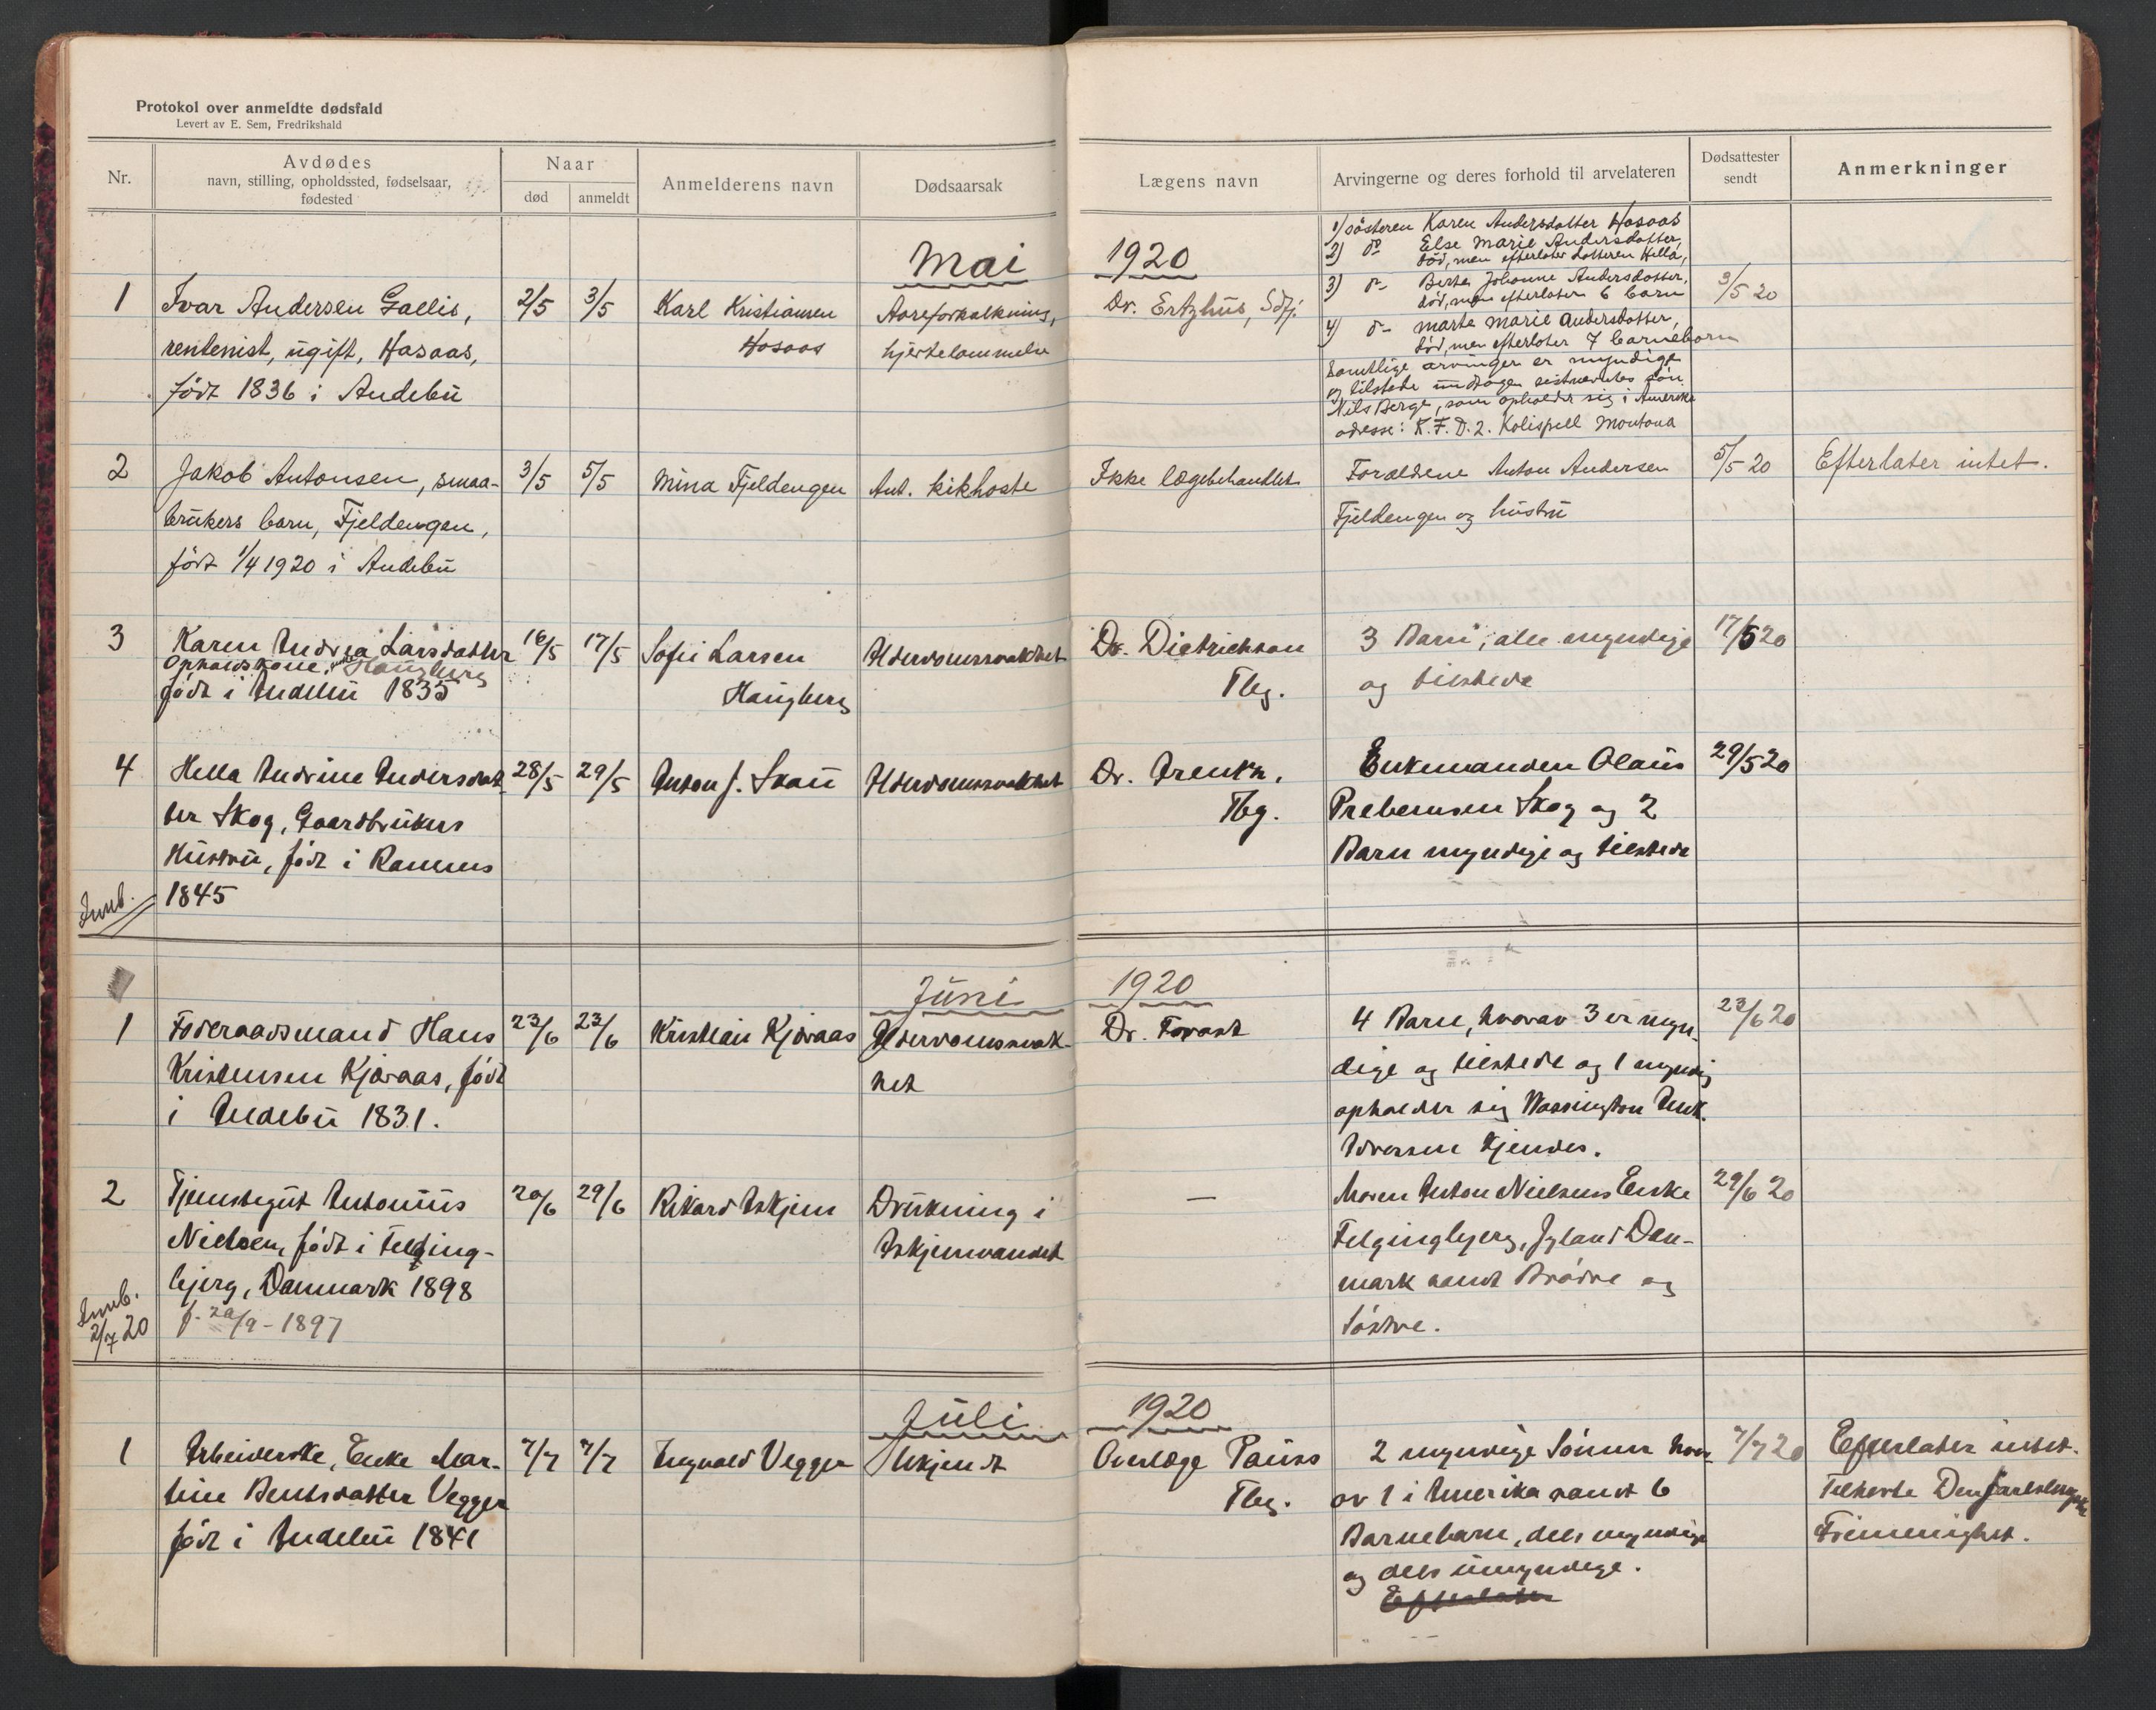 Protokol over anmeldte dødsfald
Levert av E. Sem, Fredrikshald
Nr.
Avdødes
navn, stilling, opholdssted, fødselsaar,
fødested
Naar
død
anmeldt
Anmelderens navn
Dødsaarsak
Lægens navn
Arvingerne og deres forhold til arvelateren
Dødsattester
sendt
Anmerkninger
Mai
1920
1
Ivar Andersen Gallis,
rentenist, ugift, Hasaas,
født 1836 i Andebu
2/5
3/5
Karl Kristiansen
Hasaas
Aareforkalkning,
hjertelammelse
Dr. Ertzhus,
1) søsteren Karen Andersdatter Hasaas
2) do Else Marie Andersdatter,
død, men efterlater datteren Hella,
3) do Berte Johanne Andersdatter,
død, men efterlater 6 barn
4) do Marte Marie Andersdatter,
død, men efterlater 7 barnebarn
Samtlige arvinger er myndige
og tilstede undtagen sistnevntes søn
Nils Berge, som opholder sig i Amerika
adresse: R.F.D.2. Kolispell Montana
3/5 20
2
Jakob Antonsen, smaa-
brukers barn, Fjeldengen,
født 1/4 1920 i Andebu
3/5
5/5
Mina Fjeldengen
Ant. kikhoste
Ikke lægebehandlet
Forældrene Anton Andersen
Fjeldengen og hustru
5/5 20
Efterlater intet.
3
Karen Andrea Larsdatter
Opholdskone, Haugberg
født i Andebu 1835
16/5
17/5
Sofie Larsen
Haugberg
Alderdomssvakhet
Dr. Dietrichson
Tbg.
3 Barn, alle myndige
og tilstede
17/5 20
4
Hella Andrine Andersdat-
ter Skog, Gaardbrukers
Hustru, født i Ramnes
1845
28/5
29/5
Anton J. Skau
Alderdomssvakhet
Dr. Arentz,
Tbg.
Enkemanden Olaus
Prebensen Skog og 2
Barn myndige og tilstede
29/5 20
Innb.
Juni
1920
1
Foderaadsmand Hans
Kristensen Kjæraas, født
i Andebu 1831.
23/6
23/6
Kristian Kjæraas
Alderdomssvak-
het
Dr. Torast
4 Barn, hvorav 3 er myn-
dige og tilstede og 1 myndig
opholder sig Wassington Amk.
Adressen kjendes.
23/6 20
2
Tjenstegut Antonius
Nielsen, født i Felding-
bjerg, Danmark 1898
f. 20/9 - 1897
20/6
29/6
Rikard Askjem
Drukning i
Askjemvandet
—
Moren Anton Nielsens Enke
Felgingbjerg, Jyland Dan-
mark samt Brødre og
Søstre.
29/6 20
Innb.
2/7 20
Juli
1920
1
Arbeiderske, Enke Mar-
tine Bentsdatter Vegger
født i Andebu 1841
7/7
7/7
Ingvald Vegger
Ukjendt
Overlæge Pauss
Tbg.
2 myndige Sønner hvor-
av 1 i Amerika samt 6
Barnebarn, dels myndige
og dels umyndige.
Efterlater
7/7 20
Efterlater intet.
Tilhørte Den Jarlsbergske
Frimenighet.